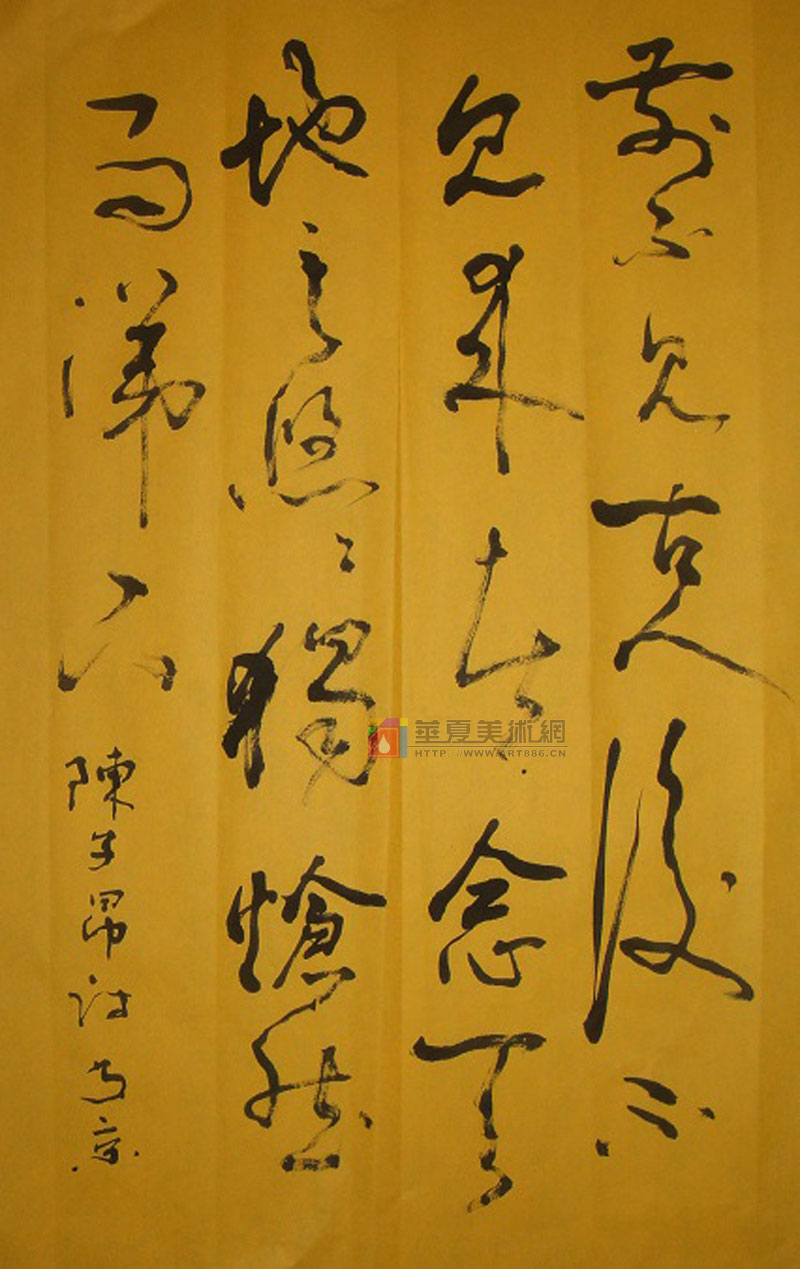 前不見古人後不
見來者念天
地之悠〻獨愴然
而涕下
陳子昂詩
華夏美術網
HTTP://WWW.ART886.CN